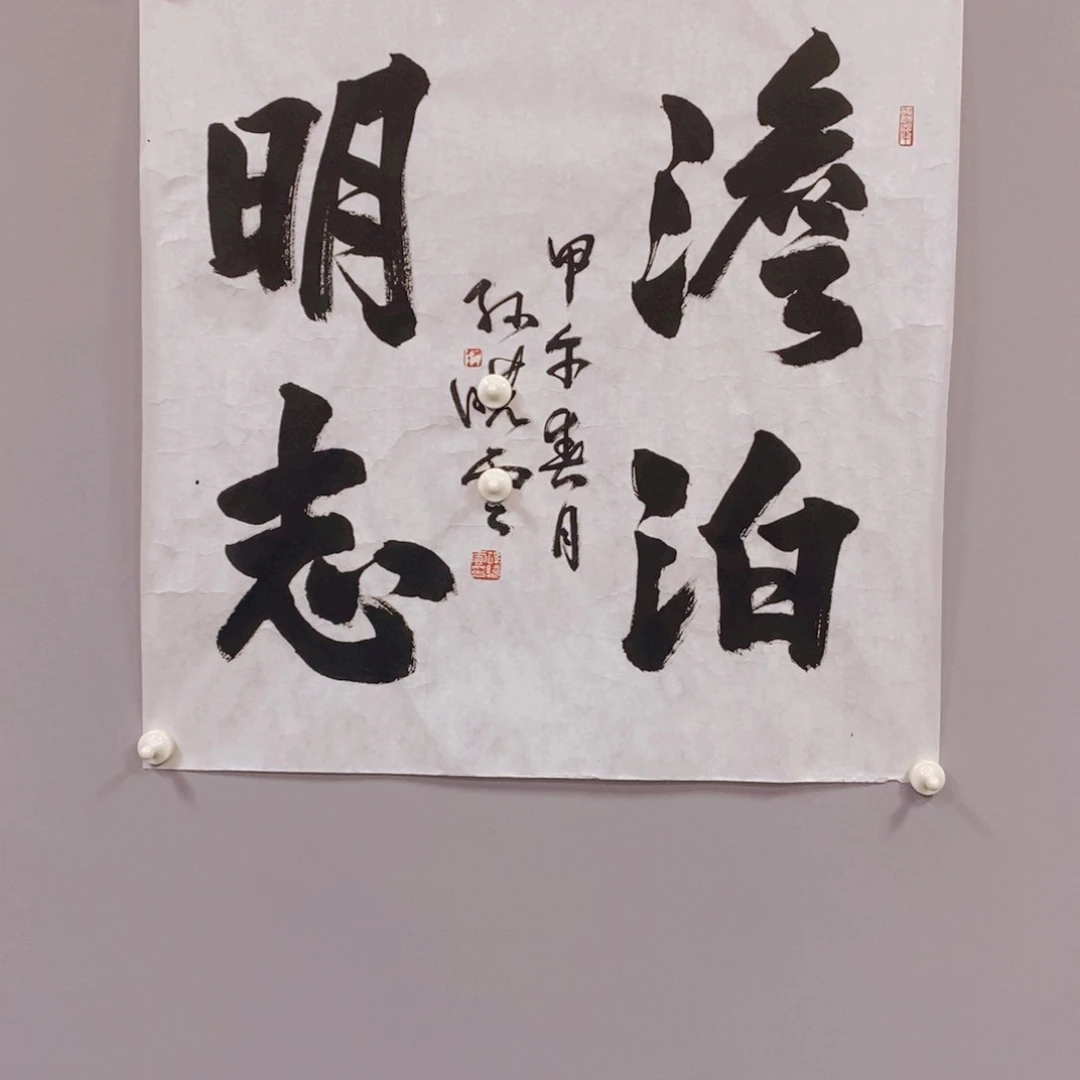 澹泊
明志
甲午春月
孙晓云